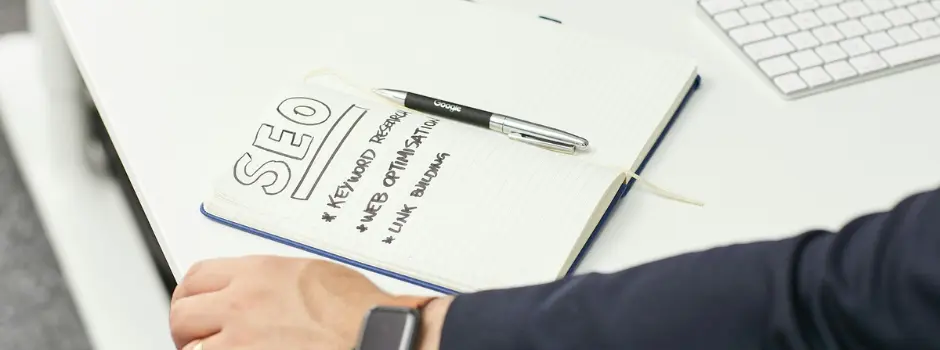 SEO
* KEYWORD RESEARCH
* WEB OPTIMISATION
* LINK BUILDING
Google